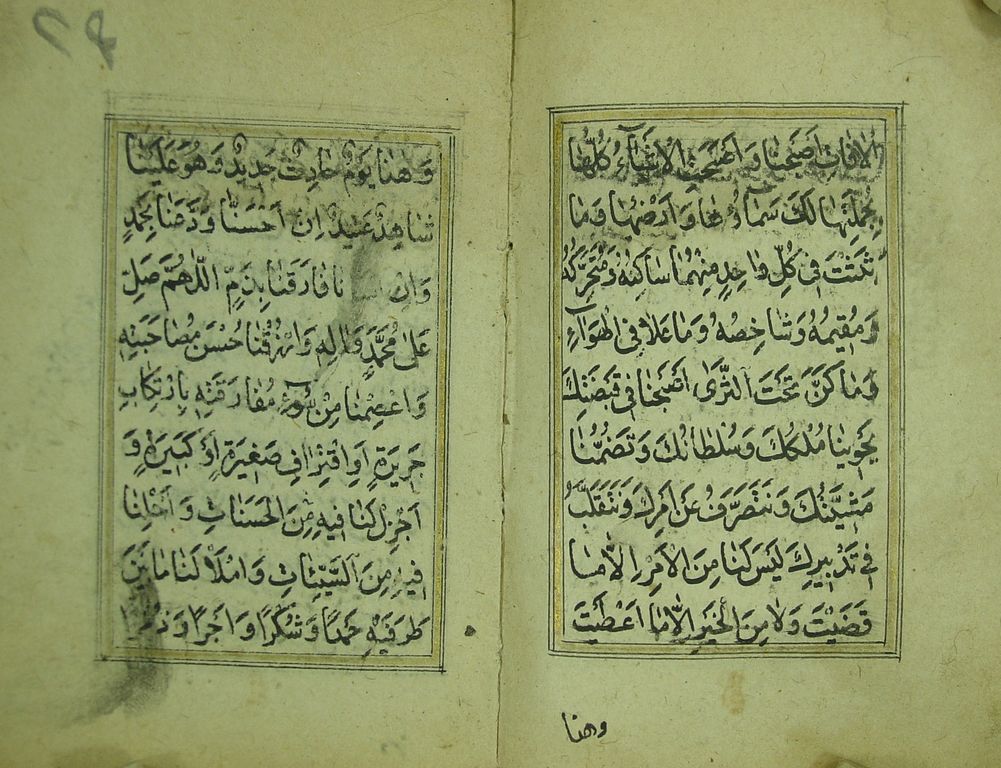 الْاٰفَاتِ اَصْبَحْنَا وَاَصْبَحَتِ الْاَشْيَاءُ كُلُّهَا
بِجُمْلَتِهَا لَكَ سَمَاؤُهَا وَاَرْضُهَا وَمَا
بَثَثْتَ فِى كُلِّ وَاحِدٍ مِنْهُمَا سَاكِنُهُ وَمُتَحَرِّكُهُ
وَمُقِيمُهُ وَشَاخِصُهُ وَمَا عَلَا فِى الْهَوَاءِ
وَمَا كَنَّ تَحْتَ الثَّرٰى اَصْبَحْنَا فِى قَبْضَتِكَ
يَحْوِينَا مُلْكُكَ وَسُلْطَانُكَ وَتَضُمُّنَا
مَشِيَّتُكَ وَنَتَصَرَّفُ عَنْ اَمْرِكَ وَنَتَقَلَّبُ
فِى تَدْبِيرِكَ لَيْسَ لَنَا مِنَ الْاَمْرِ اِلَّا مَا
قَضَيْتَ وَلَا مِنَ الْخَيْرِ اِلَّا مَا اَعْطَيْتَ
وهذا
وَهٰذَا يَوْمٌ حَادِثٌ جَدِيدٌ وَهُوَ عَلَيْنَا
شَاهِدٌ عَتِيدٌ اِنْ اَحْسَنَّا وَدَّعَنَا بِحَمْدٍ
وَاِنْ اَسَأْنَا فَارَقَنَا بِذَمٍّ اَللّٰهُمَّ صَلِّ
عَلٰى مُحَمَّدٍ وَاٰلِهِ وَارْزُقْنَا حُسْنَ مُصَاحَبَتِهِ
وَاعْصِمْنَا مِنْ سُوءِ مُفَارَقَتِهِ بِارْتِكَابِ
جَرِيرَةٍ اَوِ اقْتِرَافِ صَغِيرَةٍ اَوْ كَبِيرَةٍ وَ
اَجْزِلْ لَنَا فِيهِ مِنَ الْحَسَنَاتِ وَاَخْلِنَا
فِيهِ مِنَ السَّيِّئَاتِ وَامْلَأْ لَنَا مَا بَيْنَ
طَرَفَيْهِ حَمْدًا وَشُكْرًا وَاَجْرًا وَذُخْرًا